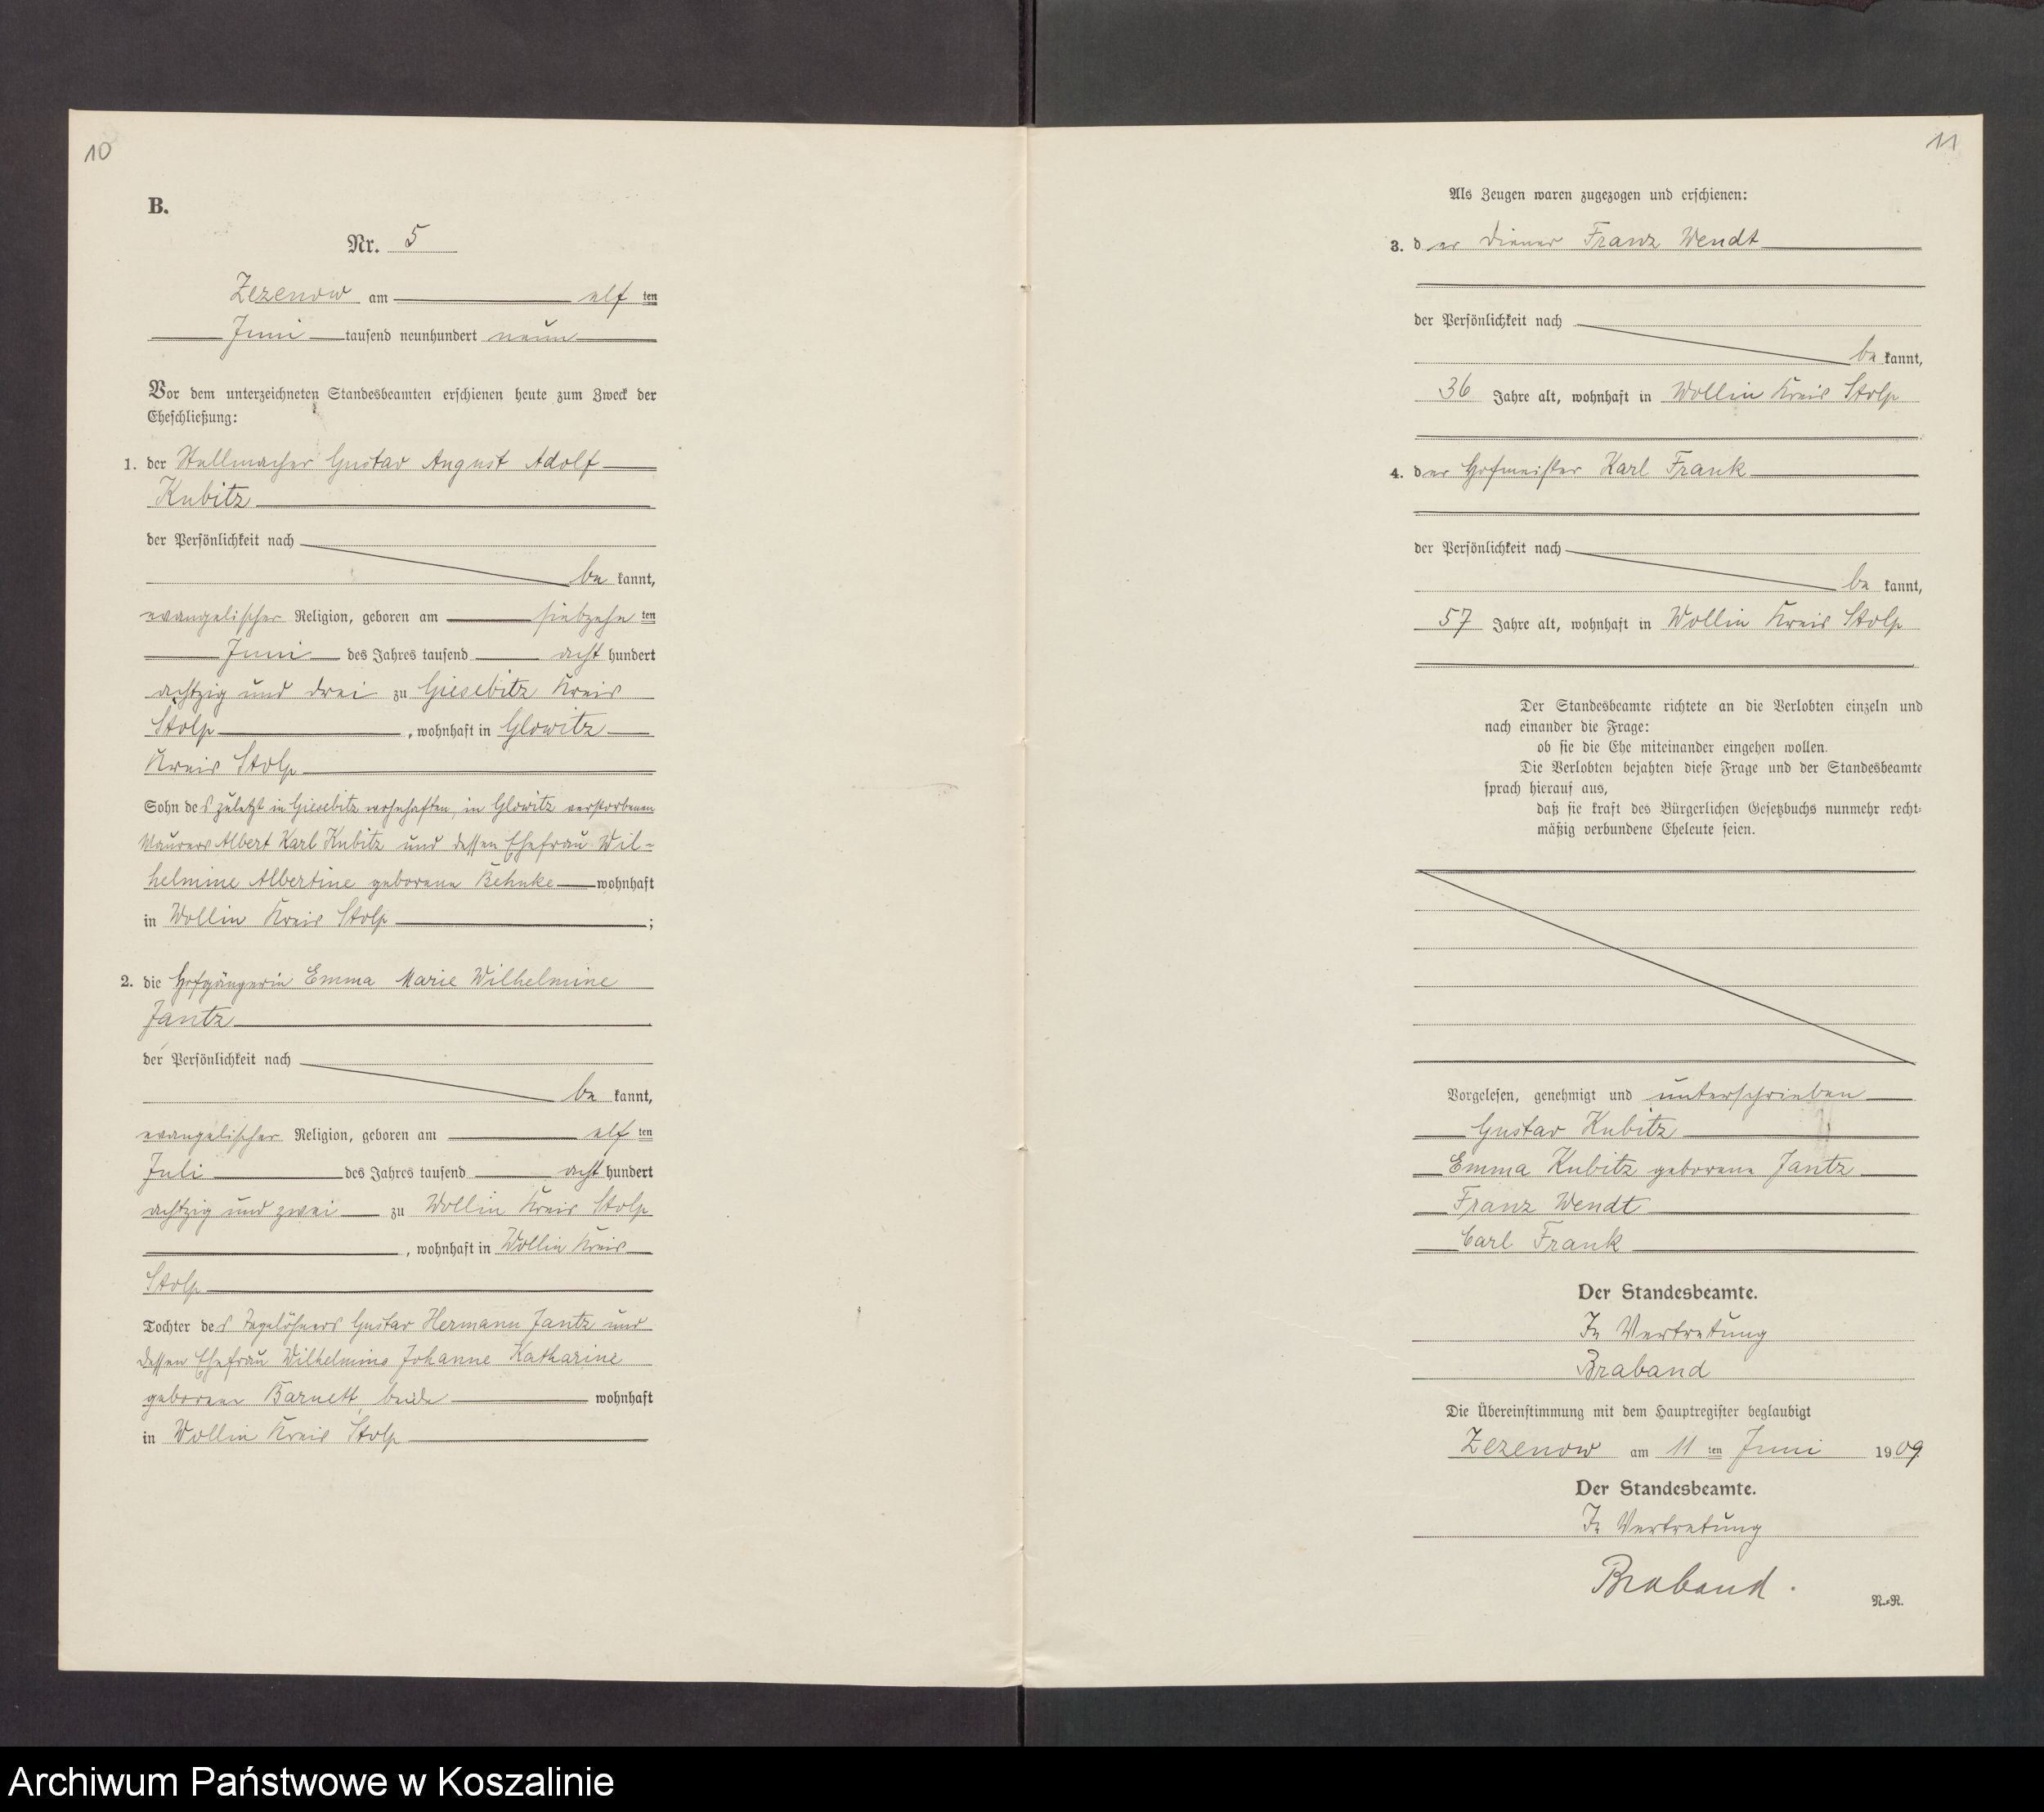 10
B.
Nr. 5
Zezenow am elf ten
Juni tausend neunhundert neun
Vor dem unterzeichneten Standesbeamten erschienen heute zum Zweck der
Eheschließung:
1. der Stellmacher Gustav August Adolf
Kubitz
der Persönlichkeit nach
be kannt,
evangelischer Religion, geboren am siebzehn ten
Juni des Jahres tausend acht hundert
achtzig und drei zu Giesebitz Kreis
Stolp, wohnhaft in Glowitz
Kreis Stolp
Sohn des zuletzt in Giesebitz wohnhaften, in Glowitz verstorbenen
Maurers Albert Karl Kubitz und dessen Ehefrau Wil-
helmine Albertine geborene Behnke wohnhaft
in Wollin Kreis Stolp;
2. die Hofgängerin Emma Marie Wilhelmine
Jantz
der Persönlichkeit nach
be kannt,
evangelischer Religion, geboren am elf ten
Juli des Jahres tausend acht hundert
achtzig und zwei zu Wollin Kreis Stolp
, wohnhaft in Wollin Kreis
Stolp
Tochter des Tagelöhners Gustav Hermann Jantz und
dessen Ehefrau Wilhelmine Johanne Katharine
geborene Barnett, beide wohnhaft
in Wollin Kreis Stolp
11
Als Zeugen waren zugezogen und erschienen:
3. der Diener Franz Wendt
der Persönlichkeit nach
be kannt,
36 Jahre alt, wohnhaft in Wollin Kreis Stolp
4. der Hofmeister Karl Frank
der Persönlichkeit nach
be kannt,
57 Jahre alt, wohnhaft in Wollin Kreis Stolp
Der Standesbeamte richtete an die Verlobten einzeln und
nach einander die Frage:
ob sie die Ehe miteinander eingehen wollen.
Die Verlobten bejahten diese Frage und der Standesbeamte
sprach hierauf aus,
daß sie kraft des Bürgerlichen Gesetzbuchs nunmehr recht-
mäßig verbundene Eheleute seien.
Vorgelesen, genehmigt und unterschrieben
Gustav Kubitz
Emma Kubitz geborene Jantz
Franz Wendt
Carl Frank
Der Standesbeamte.
In Vertretung
Braband
Die Übereinstimmung mit dem Hauptregister beglaubigt
Zezenow am 11 ten Juni 1909
Der Standesbeamte.
In Vertretung
Braband.
N.=R.
Archiwum Państwowe w Koszalinie